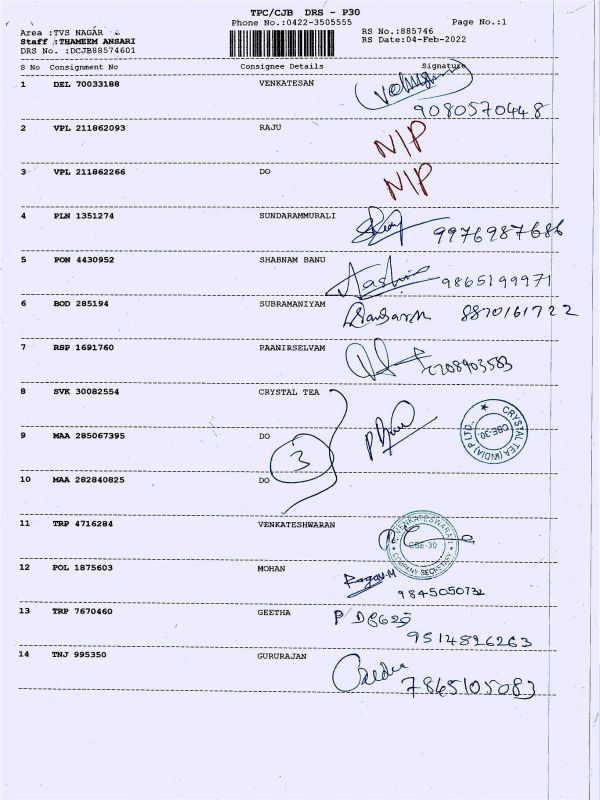 TPC/CJB DRS - P30
Phone No.:0422-3505555 Page No.:1
Area :TVS NAGAR
Staff :THAMEEM ANSARI
DRS No. :DCJB88574601
RS No.:885746
RS Date:04-Feb-2022
S No Consignment No Consignee Details Signature
1 DEL 70033188 VENKATESAN
9080570448
2 VPL 211862093 RAJU N/P
3 VPL 211862266 DO N/P
4 PLN 1351274 SUNDARAMMURALI 9976987686
5 PON 4430952 SHABNAM BANU 9865199971
6 BOD 285194 SUBRAMANIYAM 8870161722
7 RSP 1691760 PAANIRSELVAM
8 SVK 30082554 CRYSTAL TEA
CRYSTAL TEA (INDIA) P LTD.,
CBE-30.
9 MAA 285067395 DO
3
10 MAA 282840825 DO
11 TRP 4716284 VENKATESHWARAN
VENKATESWARAN
CBE-30
COMPANY SECRETARY
12 POL 1875603 MOHAN Ragav.M
9845050732
13 TRP 7670460 GEETHA
9514826263
14 TNJ 995350 GURURAJAN
7845105083